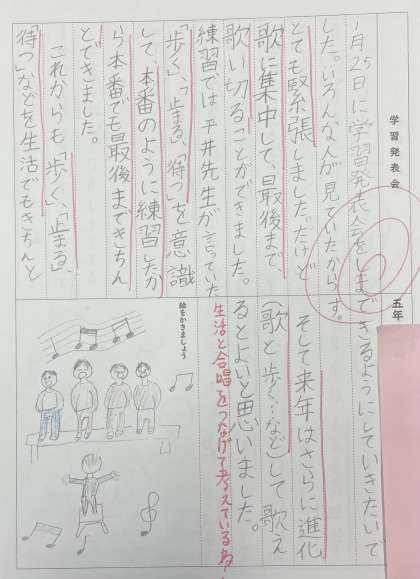 学習発表会
五年
一月25日に学習発表会をしま
した。いろんな人が見ていたから、
とても緊張しました。だけど
歌に集中して、最後まで
歌い切ることができました。
練習では平井先生が言っていた
「歩く」、「止まる」、「待つ」を意識
して、本番のように練習したか
ら本番でも最後まできちん
とできました。
これからも「歩く」、「止まる」、
「待つ」などを生活でもきちんと
できるようにしていきたいで
す。
そして来年はさらに進化
(歌と歩く…など)して歌え
るとよいと思いました。
生活と合唱をつなげて考えているね
絵をかきましょう